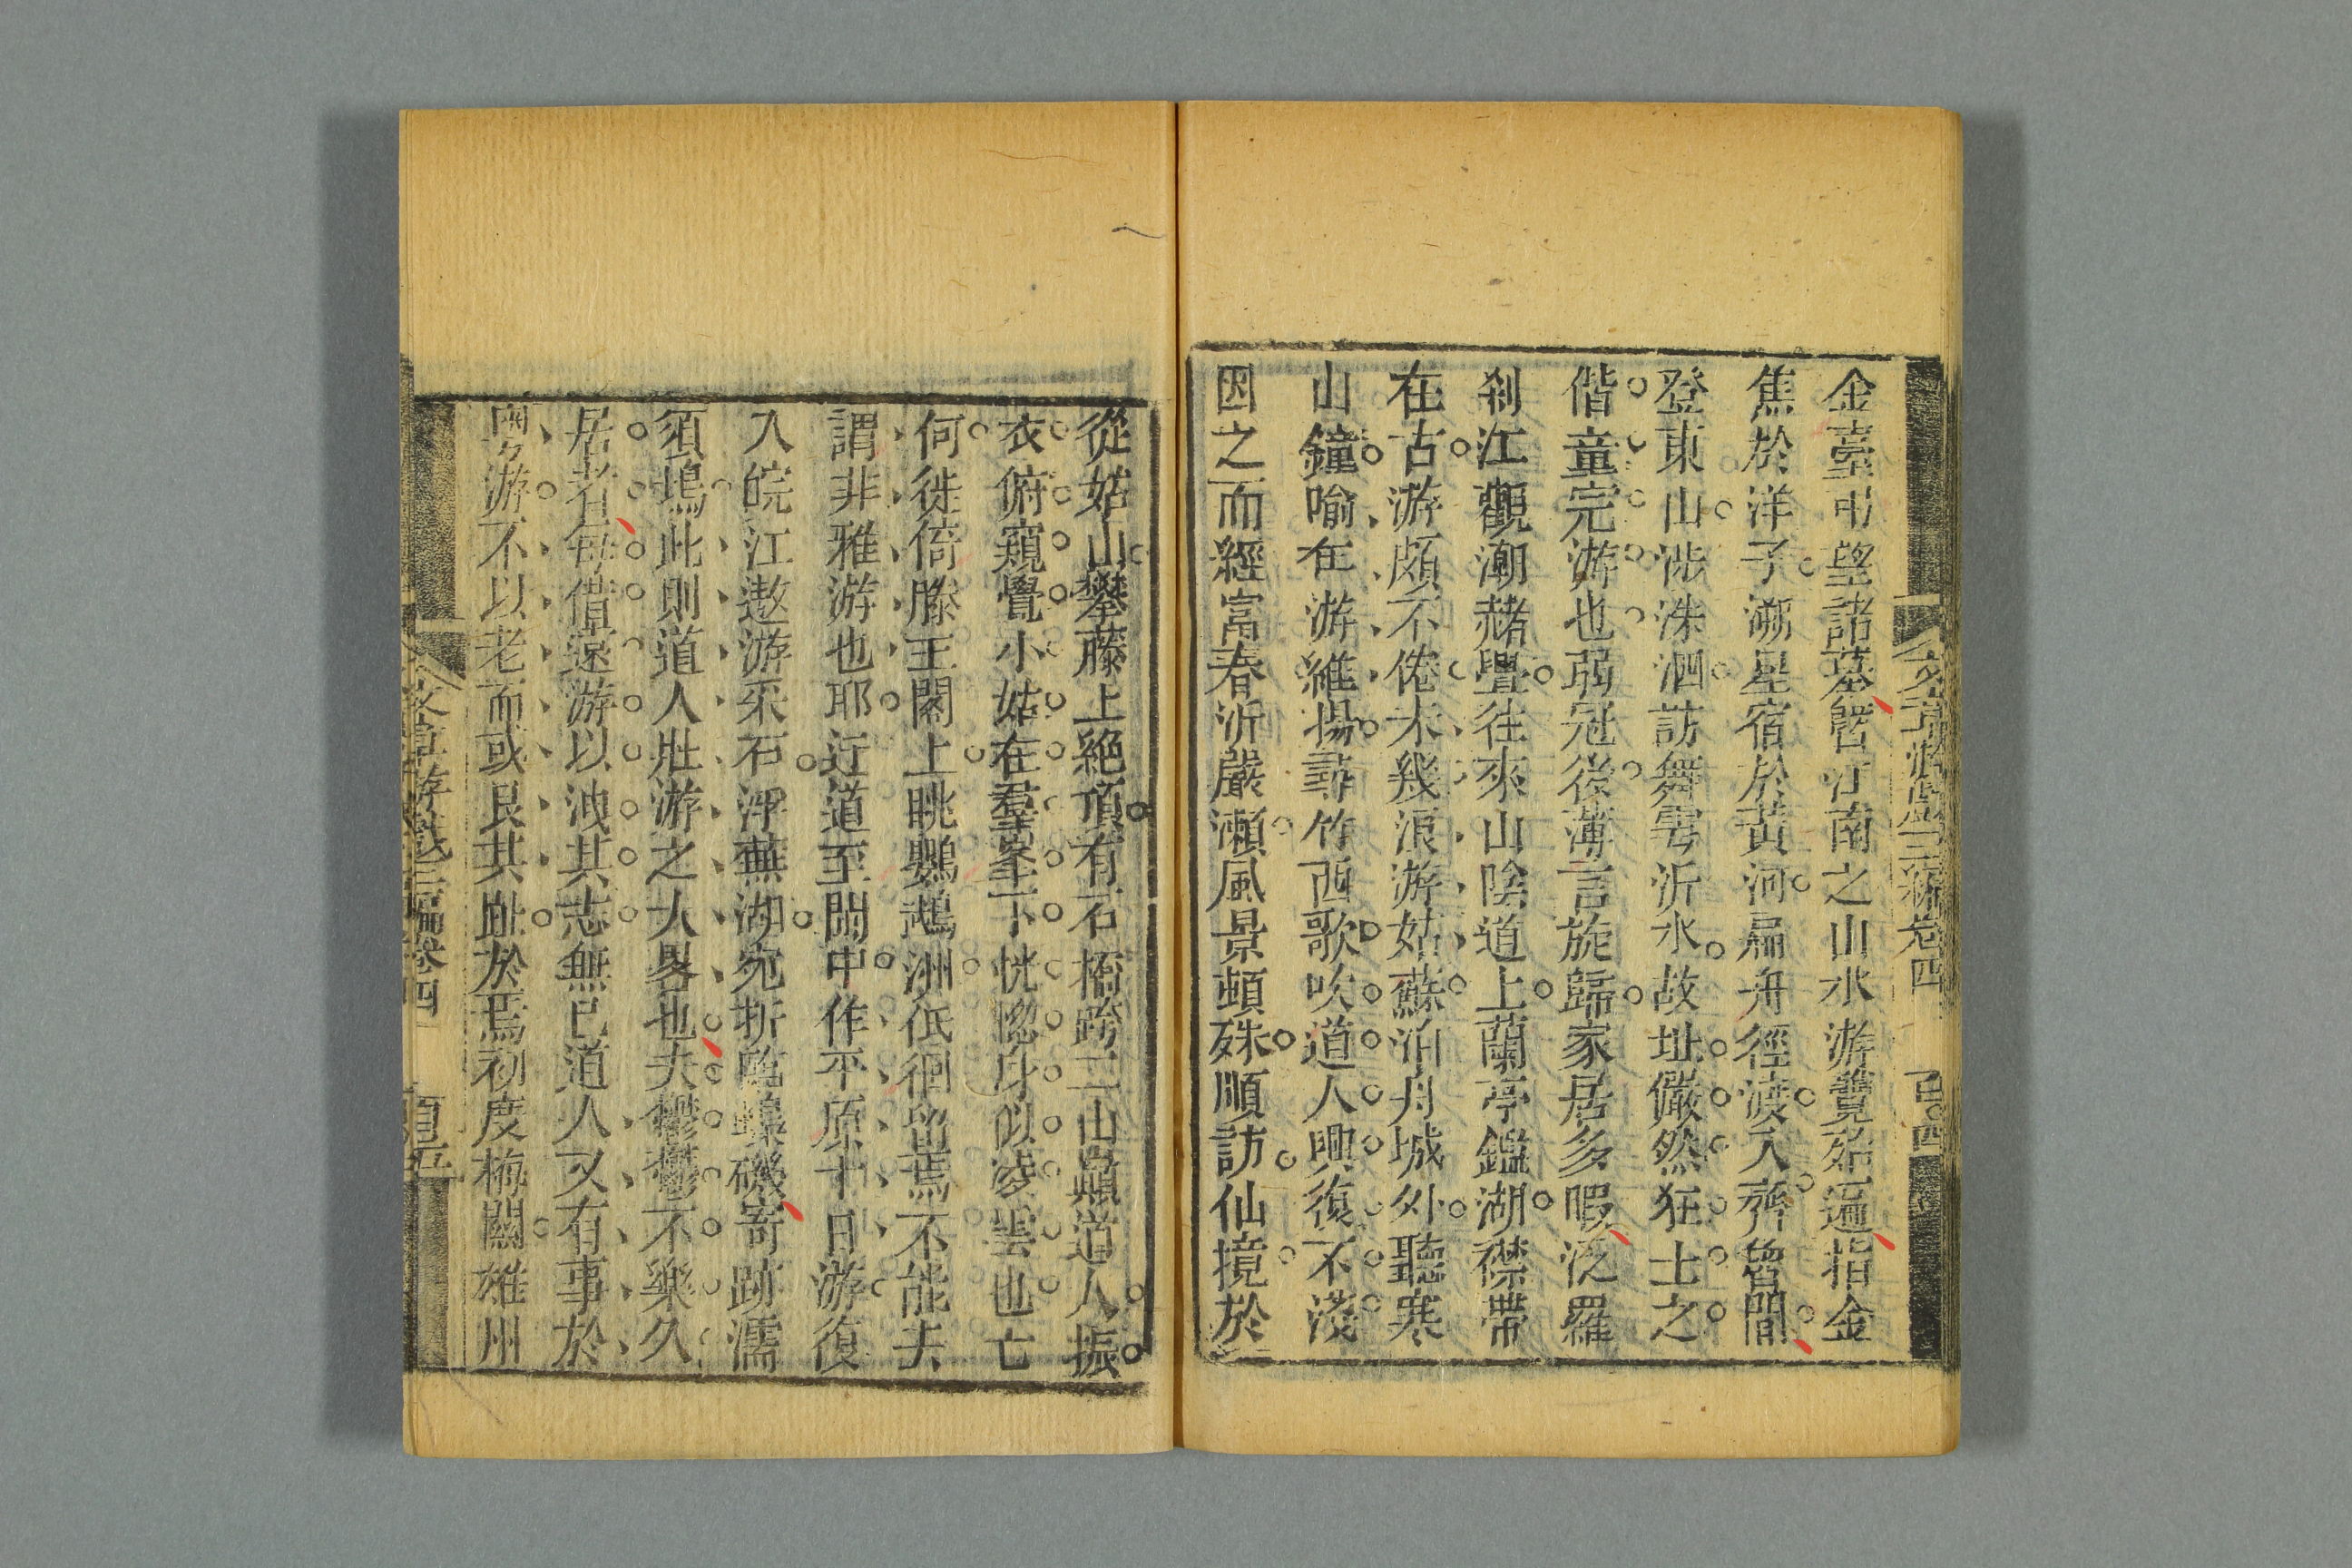 文章游戲三編卷四
金臺弔望諸墓暨江南之山水游覽殆遍指金
焦於洋子溯星宿於黃河扁舟徑渡入齊魯間
登東山涉洙泗訪舞雩沂水故址儼然狂士之
偕童冠游也弱冠後薄言旋歸家居多暇泛羅
剎江觀潮赭疊往來山陰道上蘭亭鑑湖襟帶
在古游頗不倦未幾浪游姑蘇泊舟城外聽寒
山鐘喻在游維揚尋竹西歌吹道人興復不淺
因之而經富春沂嚴瀬風景頓殊順訪仙境於
從姑山攀藤上絕頂有石橋跨二山巔道人振
衣俯窺覺小姑在羣峯下恍惚身似凌雲也亡
何徙倚滕王閣上眺鸚鵡洲低徊留焉不能去
謂非雅游也耶迂道至閩中作平原十日游復
入皖江遨游采石浮蕪湖宛折臨蟂磯寄跡濡
須塢此則道人壯游之大畧也夫鬱鬱不樂久
居者每借遠游以洩其志無已道人又有事於
粵游不以老而或艮其趾於焉初度梅關雄州
文章游戲三編卷四